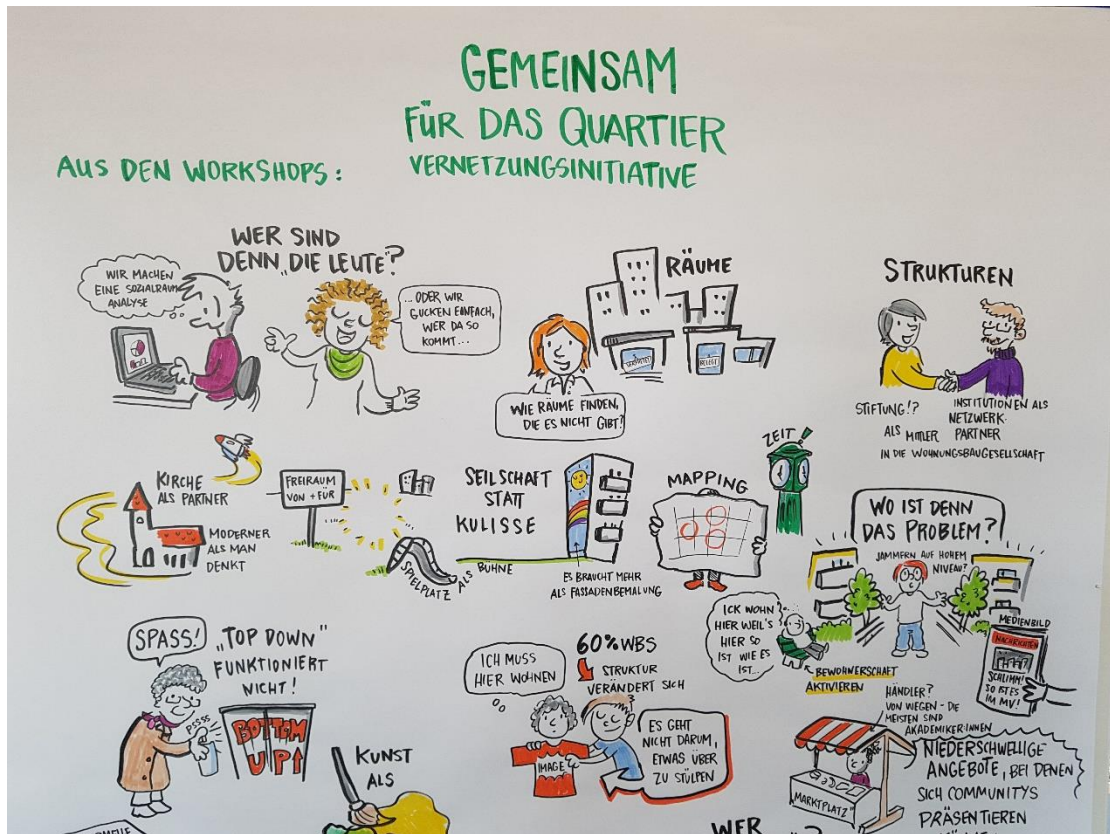 GEMEINSAM
FÜR DAS QUARTIER
VERNETZUNGSINITIATIVE
AUS DEN WORKSHOPS:
WER SIND
DENN „DIE LEUTE"?
WIR MACHEN
EINE SOZIALRAUM
ANALYSE
... ODER WIR
GUCKEN EINFACH,
WER DA SO
KOMMT...
RÄUME
VERMIETET
BELEGT
WIE RÄUME FINDEN,
DIE ES NICHT GIBT?
STRUKTUREN
STIFTUNG!?
ALS MITTLER
IN DIE WOHNUNGSBAUGESELLSCHAFT
INSTITUTIONEN ALS
NETZWERK-
PARTNER
KIRCHE
ALS PARTNER
MODERNER
ALS MAN
DENKT
FREIRAUM
VON + FÜR
SPIELPLATZ ALS BÜHNE
SEILSCHAFT
STATT
KULISSE
ES BRAUCHT MEHR
ALS FASSADENBEMALUNG
MAPPING
ZEIT!
WO IST DENN
DAS PROBLEM?
JAMMERN AUF HOHEM
NIVEAU?
ICK WOHN
HIER WEIL'S
HIER SO
IST WIE ES
IST...
BEWOHNERSCHAFT
AKTIVIEREN
MEDIENBILD
NACHRICHTEN
SCHLIMM!
SO IST ES
IM MV!
SPASS!
„TOP DOWN"
FUNKTIONIERT
NICHT!
PSSSS
BOTTOM
UP
KUNST
ALS
ICH MUSS
HIER WOHNEN
60% WBS
STRUKTUR
VERÄNDERT SICH
IMAGE
ES GEHT
NICHT DARUM,
ETWAS ÜBER
ZU STÜLPEN
HÄNDLER?
VON WEGEN - DIE
MEISTEN SIND
AKADEMIKER:INNEN
„MARKTPLATZ"
NIEDERSCHWELLIGE
ANGEBOTE, BEI DENEN
SICH COMMUNITYS
PRÄSENTIEREN
WER